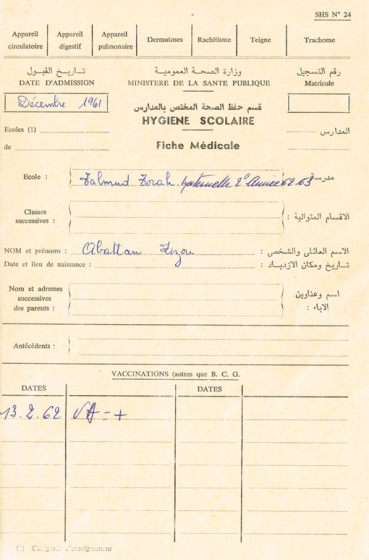 SHS N° 24
Appareil circulatoire
Appareil digestif
Appareil pulmonaire
Dermatoses
Rachitisme
Teigne
Trachome
تاريخ القبول
DATE D'ADMISSION
Décembre 1961
وزارة الصحة العمومية
MINISTERE DE LA SANTE PUBLIQUE
قسم حفظ الصحة المختص بالمدارس
HYGIENE SCOLAIRE
Fiche Médicale
رقم التسجيل
Matricule
Ecoles (1)
المدارس
de
Ecole : Talmud Torah. maternelle 2e Année 62.63 مدرسة
Classes successives : الاقسام المتوالية :
NOM et prénoms : Abattan الاسم العائلي والشخصي :
Date et lieu de naissance : تاريخ ومكان الازدياد :
Nom et adresses successives des parents : اسم وعناوين الاباء :
Antécédents :
VACCINATIONS (autres que B. C. G.
DATES
DATES
13.2.62 VA = +
(1) Catégorie d'enseignement